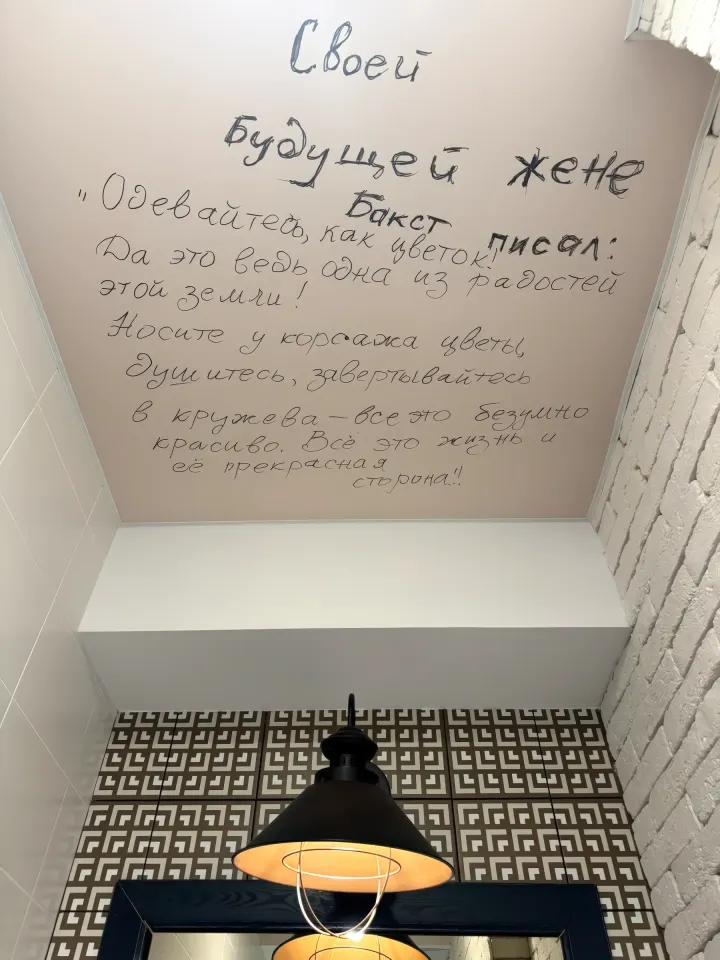 Своей
Будущей жене
Бакст писал:
"Одевайтесь, как цветок!
Да это ведь одна из радостей
этой земли!
Носите у корсажа цветы,
душитесь, завертывайтесь
в кружева – все это безумно
красиво. Всё это жизнь и
её прекрасная
сторона!"